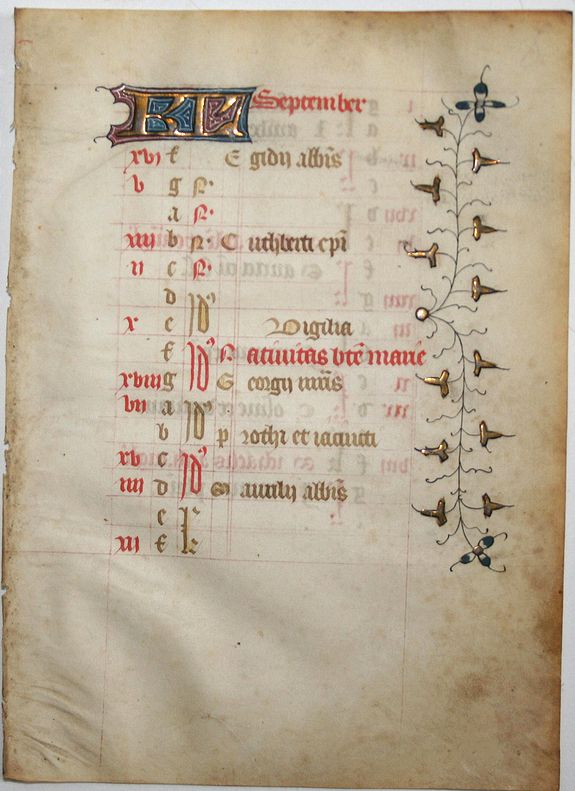 KL September
xvi f Egidij albis
v g N
a N
xiii b N Cuthberti epi
ii c N
d Id
x e Id Vigilia
f Id Natiuitas bte marie
xviii g Id Georgij mris
vii a Id
b Id prothi et iacincti
xv c Id
iiii d Id Maurilij albis
e kl
xii f kl